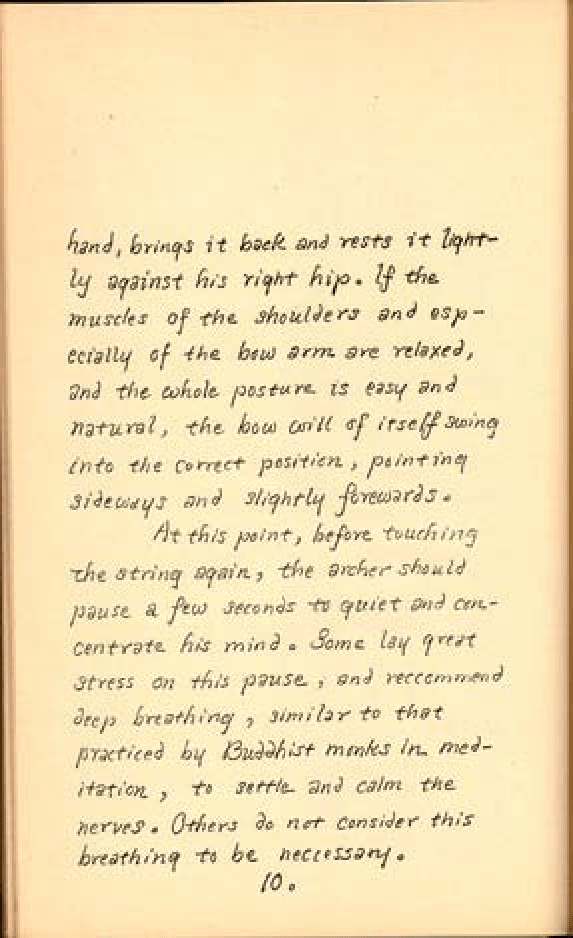 hand, brings it back and rests it light-
ly against his right hip. If the
muscles of the shoulders and esp-
ecially of the bow arm are relaxed,
and the whole posture is easy and
natural, the bow will of itself swing
into the correct position, pointing
sideways and slightly forewards.
At this point, before touching
the string again, the archer should
pause a few seconds to quiet and con-
centrate his mind. Some lay great
stress on this pause, and reccommend
deep breathing, similar to that
practiced by Buddhist monks in med-
itation, to settle and calm the
nerves. Others do not consider this
breathing to be neccessary.
10.